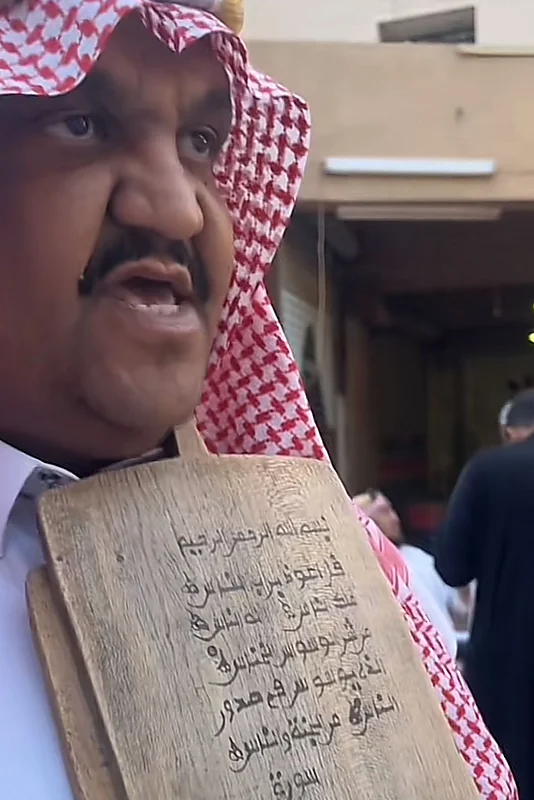 بسم الله الرحمن الرحيم
قل اعوذ برب الناس
ملك الناس اله الناس
من شر الوسواس الخناس
الذي يوسوس في صدور
الناس من الجنة والناس
سورة